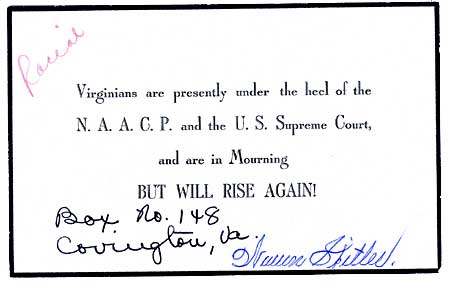 Racial
Virginians are presently under the heel of the
N. A. A. C. P. and the U. S. Supreme Court,
and are in Mourning
BUT WILL RISE AGAIN!
Box No. 148
Covington, Va.